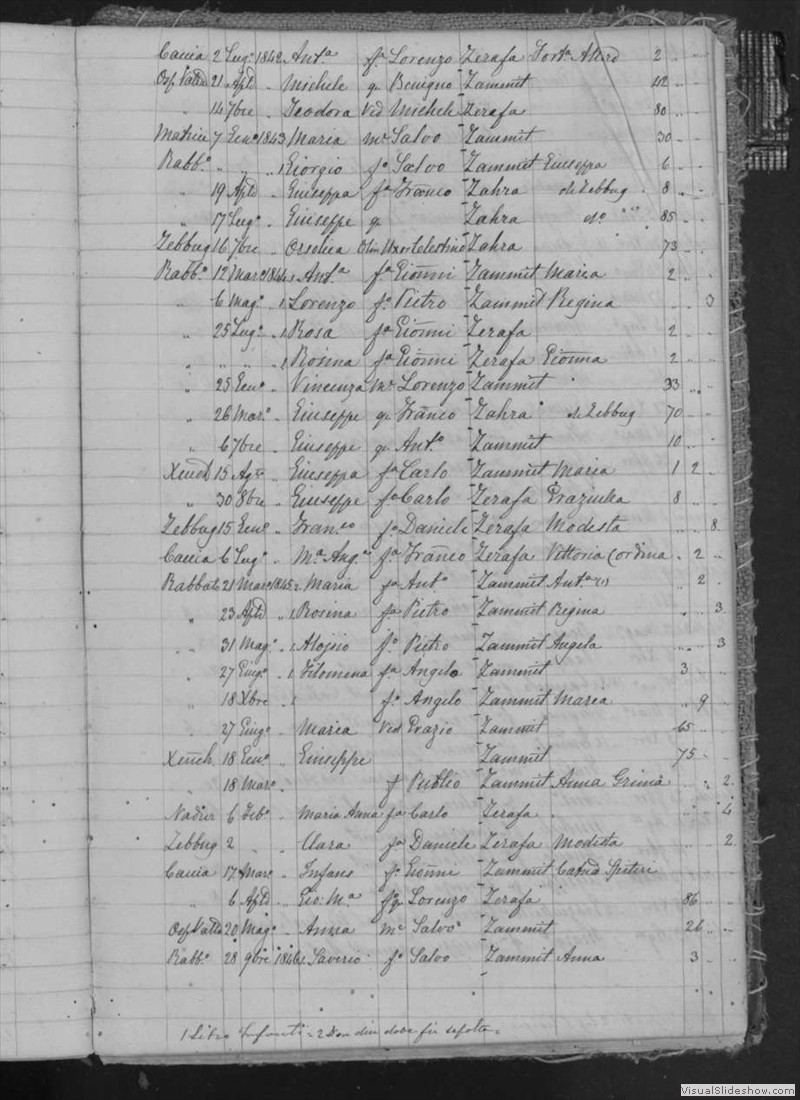 Caccia 2 Lug.o 1842 Ant.a fa Lorenzo Zerafa Fort.a Attard 2 „ „
Osp Vallta 21 Aple „ Michele q. Benigno Zammit 42
„ 14 7bre „ Teodora Ved Michele Zerafa 80 „ „
Matrice 7 Gen.o 1843 Maria me Salvo Zammit 30
Rabb.o „ „ „ 1 Giorgio fo Salvo Zammit Giuseppa 6 „
„ 19 Aple „ Giuseppa fa Franco Zahra di Zebbug 8 „
„ 17 Lug.o „ Giuseppe q Zahra do 85 „
Zebbug 16 7bre „ Orsolica Olim Uxor Celestino Zahra 73
Rabb.o 12 Marzo 1844 1 Ant.a fa Gioñni Zammit Maria 2 „ „
„ 6 Mag.o „ 1 Lorenzo fo Pietro Zammit Regina „ 3
„ 25 Lug.o „ 1 Rosa fa Gioñni Zerafa 2 „
„ „ „ „ 1 Rosina fa Gioñni Zerafa Gioñna 2 „
„ 25 Gen.o „ Vincenza Me Lorenzo Zammit 33 „
„ 26 Mar.o „ Giuseppe q. Franco Zahra di Zebbug 70 „
„ 6 7bre „ Giuseppe q. Ant.o Zammit 10 „
Xeuch 15 Agto „ Giuseppa fa Carlo Zammit Maria 1 2 „
„ 30 8bre „ Giuseppe fo Carlo Zerafa Graziulla 8 „
Zebbug 15 Gen.o „ Franco fo Daniele Zerafa Modesta „ 8
Caccia 6 Lug.o „ Ma Ang.a fa Franco Zerafa Vittoria Cordina „ 2 „
Rabbato 21 Marzo 1845 2 Maria fa Ant.o Zammit Ant.a „ 2
„ 23 Aple „ 1 Rosina fa Pietro Zammit Regina „ 3
„ 31 Mag.o „ 1 Alojsio fo Pietro Zammit Angela „ 3
„ 27 Giug.o „ 1 Filomena fa Angelo Zammit 3 „
„ 18 Xbre „ 1 fo Angelo Zammit Maria „ 9
„ 27 Giug.o „ Maria Ved Grazio Zammit 65
Xeuch 18 Gen.o „ Giuseppe Zammit 75 „
18 Mar.o „ f Publio Zammit Anna Grima „ „ 2
Nadur 6 Feb.o „ Maria Anna fa Carlo Zerafa „ 4
Zebbug 2 „ „ Clara fa Daniele Zerafa Modesta 2
Caccia 17 Mar.o „ Infans fo Gioñni Zammit Catna Spiteri
„ 6 Aple „ Gio: Ma Lorenzo Zerafa 86 „
Osp Vallta 20 Mag.o „ Anna me Salvo Zammit 26 „
Rabb.o 28 9bre 1846 1 Saverio fo Salvo Zammit Anna 3 „
1 Libro Infanti = 2 Non dice dove fu sepolta =
VisualSlideshow.com